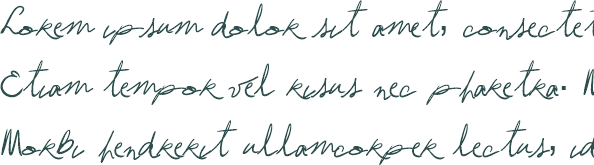 Lorem ipsum dolor sit amet, consectet
Etiam tempor vel risus nec pharetra. M
Morbi hendrerit ullamcorper lectus, id